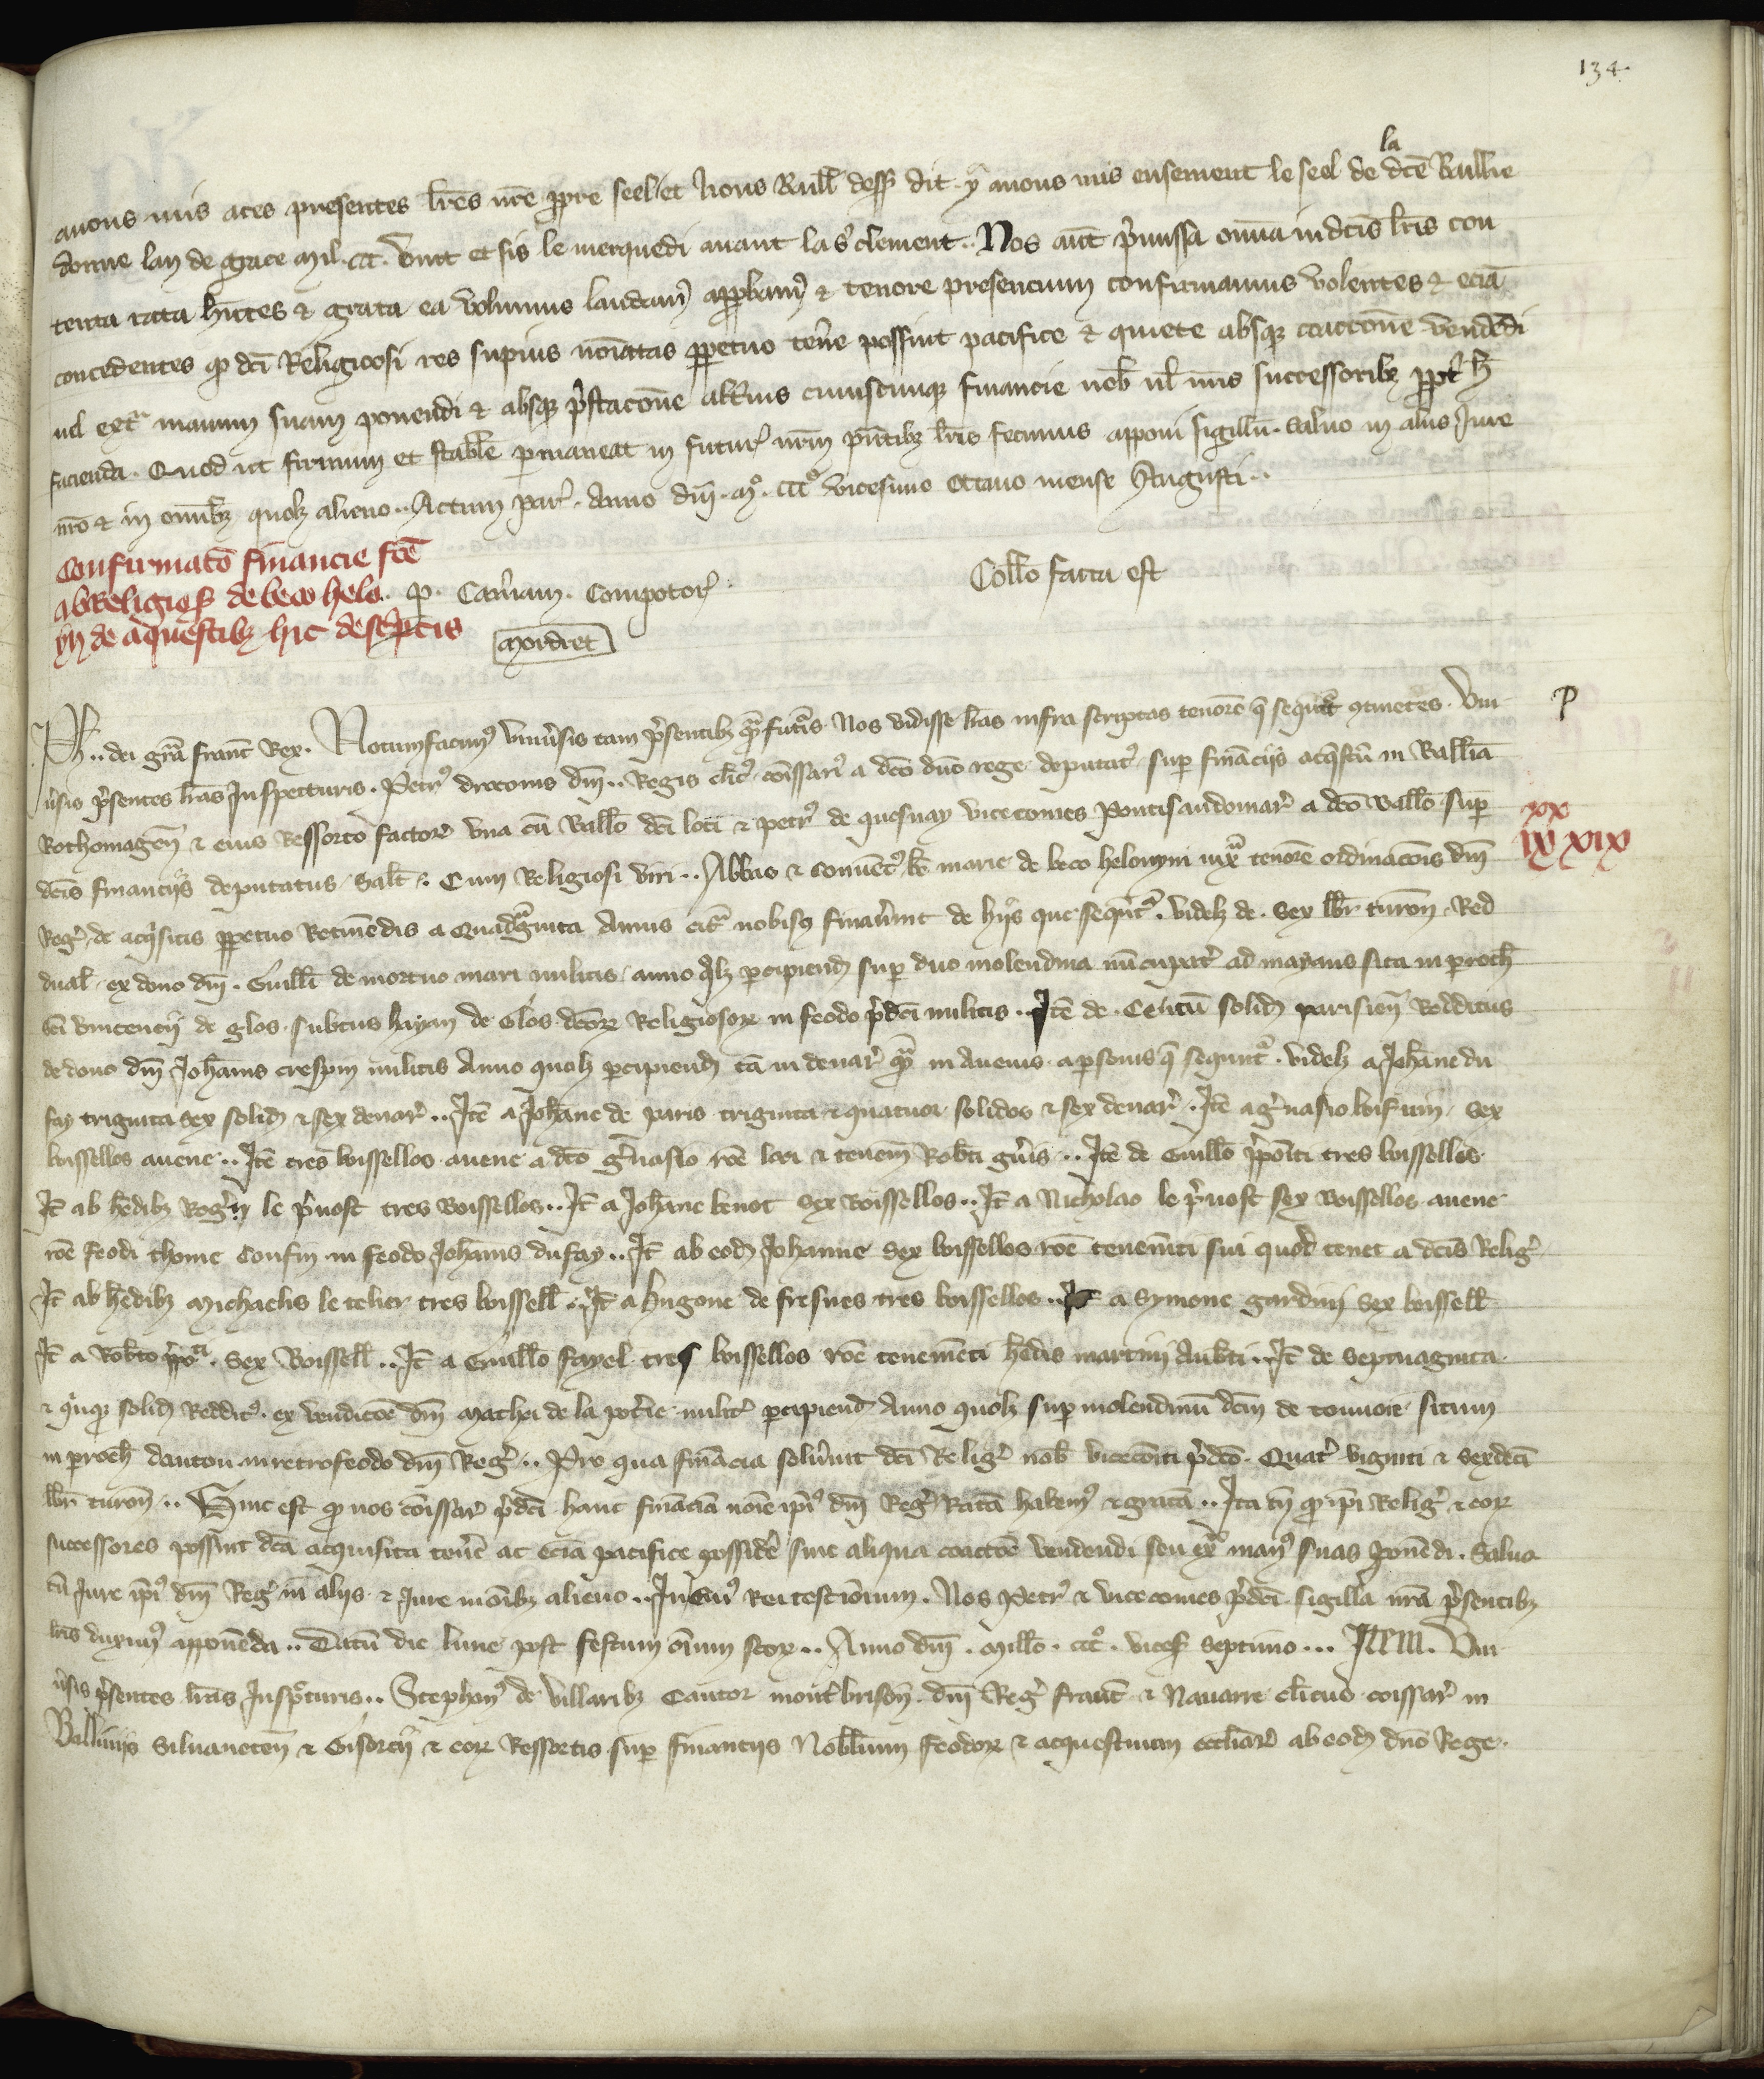 134.
la
avons mis a ces presentes lr̃es nr̃e ppre seel et nous Baill̃ dess̃ dit y avons mis ensement le seel de dcẽ Baillie
donne lan de grace Mil. ccc. vint et sis le merquedi avant la s̃ clement.. Nos aut̃ p̃missa om̃ia in dcĩs lr̃is con
tenta rata hñtes & grata ea volumus laudam9 approbam9 & tenore presencium confirmamus volentes & eciã
concedentes qp dcĩ Religiosi res supius noĩatas ppetuo teñe possint pacifice & quiete absqz coactione vendẽdi
vel ext̃ manum suam ponendi & absqz p̃stacõne alt̃ius cuiuscunqz financie nob̃ vl̃ nr̃is successoribz ppt̃ h̃
facienda. Quod ut firmum et stabile pmaneat in futur̃ nr̃m pñtibz lr̃is fecimus apponi sigillũ. Salvo in aliis Jure
nr̃o & in omĩbz quolz alieno.. Actum Par̃. Anno dñi. Mo. ccco vicesimo octavo mense Augusti..
Confirmatõ financie fcẽ
Coll̃o facta est
ab Religios̃ de beco helo
. p. Cam̃am. Compotor̃.
yn de aquestibz hic desc̃ptis
Mordret
Ph.. dei grã franc̃ Rex. Notum facim9 uniṽsis tam p̃sentibz quã fut̃is Nos vidisse lr̃as infra scriptas tenorẽ q̃ sequit̃ 9tinẽtes. Uni
p
ṽsis p̃sentes lr̃as Inspecturis. Petr9 dñi.. Regis cl̃ic9 com̃issari9 a dcõ dño rege deputat9 sup finãciis acq̃stũ in Ballĩa
xx
Rothomageñ & eius Ressorto factor̃ una cũ Ball̃o dcĩ loci & petr9 de quesnay vicecomes pontisaudomar̃ a dcõ Ball̃o sup
ix xix
dcĩs financiis deputatus. Salt̃.. Cum Religiosi viri.. Abbas & convẽt9 be marie de beco helonyni iuxã tenorẽ ordinacõis dñi
Reg̃. de acq̃sitis ppetuo Retinẽdis a Quadrãginta Annis cit̃ nobiscũ finaṽint de hiis que sequñt̃. videlz de. Sex lbr̃ turoñ. Red
dual̃ ex dono dñi. Guill̃i de mortuo mari militis. anno q̃lz pcipiend̃ sup duo molendina nũcupat̃ ad mayans sita in proch̃
sc̃i vincencii de glos subtus hayam de Glos dcõr̃ Religiosor̃ in feodo p̃dcĩ militis.. Itẽ de. Centũ solid̃ parisieñ Redditus
de dono dñi Joh̃anis crespin militis Anno quolz pcipiend̃ tã in denar̃ quã in avenis a psonis q̃ sequnt̃. videlz a Joh̃ane du
fay triginta sex solid̃ & sex denar̃.. Itẽ a Joh̃ane de paris triginta & quatuor solidos & sex denar̃.. Itẽ a g̃vasio Sex
boissellos avene.. Itẽ tres boissellos avene a dcõ g̃vasio rõe loci & tenem̃ Rob̃ti.. Itẽ de Guill̃o p̃põiti tres boissellos.
It̃ ab h̃edibz Rog̃ii le p̃vost tres Boissellos.. It̃ a Joh̃ane benot Sex Boissellos.. It̃ a Nicholao le p̃vost sex Boissellos avene
rõe feodi thome Confin in feodo Joh̃anis du fay.. It̃ ab eod̃ Johanne Sex boissellos rõe tenem̃ti sui quod tenet a dcĩs Relig̃.
It̃ ab h̃edibz Michaelis le telier tres boissell̃.. It̃ a Hugone de fresnes tres boissellos.. It̃ a Symone gardinj Sex boissell̃
It̃ a Rob̃to p̃poĩti. Sex Boissell̃.. It̃ a Guill̃o fayel tres boissellos rõe tenemẽti h̃edis martinj Aub̃ti.. It̃ de Septuaginta
& q̃nqz solid̃ Reddit9. ex vendicõe dñi Mathei de la pot̃ie milit̃ pcipiend̃ Anno quolz sup molendinũ dcm̃ de situm
in proch̃ danton in retrofeodo dñi Reg̃.. Pro qua finãcia solṽunt dcĩ Relig̃ nob̃ vicecom̃iti p̃dcõ. Quat̃ viginti & Sexdecĩ
lbr̃ turoñ.. Hinc est qp nos com̃issar̃ p̃dcĩ hanc finãciã noĩe ip̃i9 dñi Reg̃ Ratã habem9 & gratã.. Ita tñ qp ip̃i Relig̃ & eor̃
successores possint dcã acquisita teñe ac eciã pacifice possidẽ sine aliqua coactõe vendendi seu ext̃ man9 suas ponẽdi. Salvo
tñ Jure ip̃i9 dñi Reg̃ in aliis & Jure in oĩbz alieno.. In cui9 Rei testĩonium. Nos Petr9 & vicecomes p̃dcĩ sigilla nr̃a p̃sentibz
lr̃is duxim9 apponẽda.. Datũ die lune post festum oĩum scõr̃.. Anno dñi. Mill̃o. ccco. vices̃ septimo... ITEM. Uni
ṽsis p̃sentes lr̃as Insp̃cturis.. Stephan9 de villaribz Cantor mont̃brisoñ. dñi Reg̃ franc̃ & Navarre cl̃icus com̃issar̃ in
Balliviis Silvaneteñ & Gisorcii & eor̃ Ressortis sup financiis Nobiliũm feodor̃ & acquestuum eccl̃iar̃ ab eod̃ dño Rege.